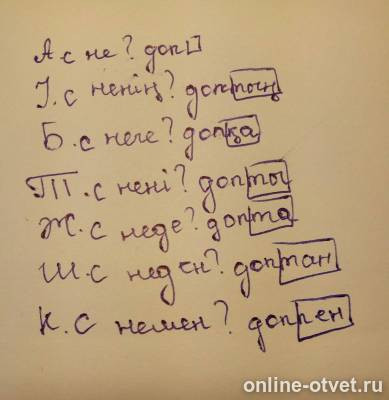 А.с не? доп
І.с ненің? доптың
Б.с неге? допқа
Т.с нені? допты
Ж.с неде? допта
Ш.с неден? доптан
К.с немен? доппен
online-otvet.ru